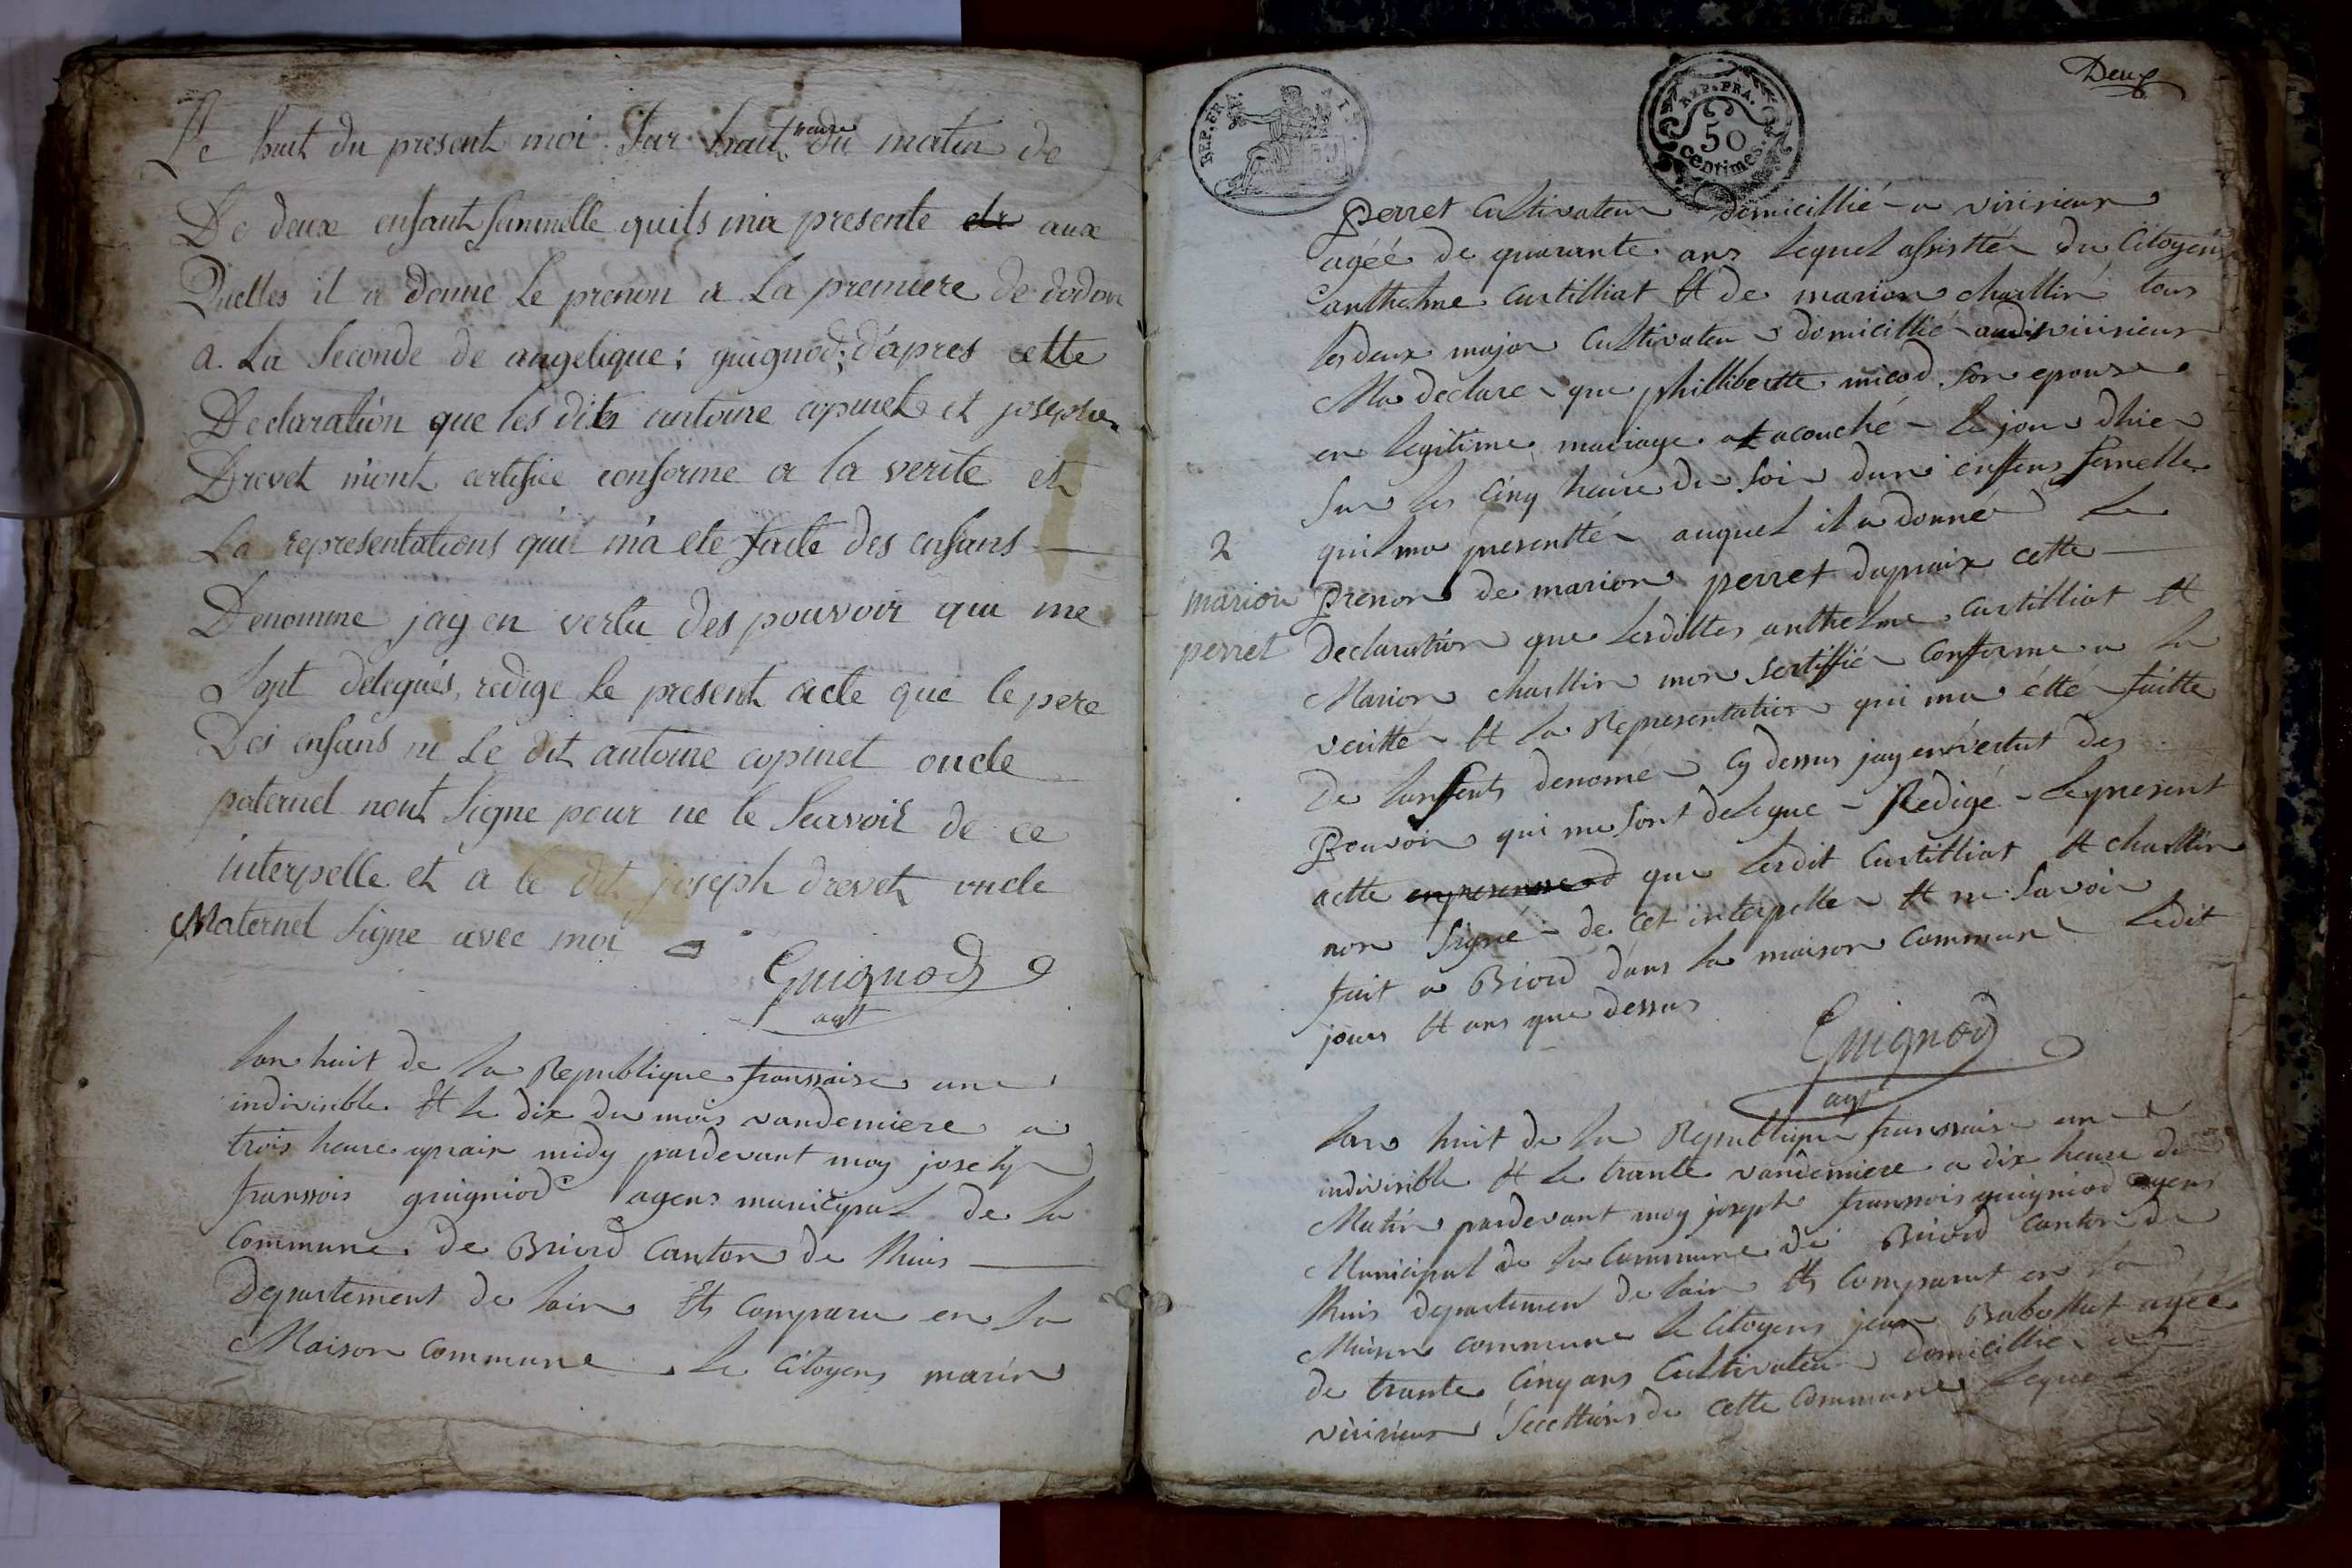 Le huit du present moi Sur huit heure du matin de
De deux enfant fammelle quils ma presente aux
Quelles il a donne le prenon a La premiere de dodon
a La Seconde de angelique ; guignod ; d'apres cette
Declaration que les dits antoine copinet et joseph
Drevet m'ont certifiée conforme a la verite et
La representations qui m'a ete faite des enfans
Denomme jay en vertu des pouvoir qui me
Sont delegués, redige le present acte que le pere
Des enfans ni Le dit antoine copinet oncle
paternel nont Signe pour ne le Scavoir de ce
interpelle et a le dit joseph drevet oncle
Maternel Signe avec moi
Guignod
agt
lan huit de la Republique franssaise une
indivisible Et le dix du mois vandemiere a
trois heure apraix midy pardevant moy joseph
franssois guigniod agens municipal de la
Commune de Briord Canton de Rhuis
Departement de lain Et Comparu en la
Maison Commune le Citoyens marin
REP. FRA.
REP. FRA.
50
centimes.
Deux
Perret Cultivateur domicillié a virisieux
agéé de quarante ans lequel assistté du Citoyens
anthelme Curtilliat Et de marion charllin tous
les deux major Cultivateur domicillié audit virisieux
Ma declare que phillibertte micod Son epouse
en legitime mariage at acouché le jour dhier
Sur les Cinq heure du Soir dun enffens femelle
quil ma presentté auquel il a donné le
2
marion
perret
Prenon de marion perret dapraix cette
Declaration que lesdittes anthelme Curtilliat Et
Marion charllin mon Sertiffié Conforme a la
veritté Et la Representation qui ma étté faitte
De lanffents denomé Cy dessus jay en vertut des
Pouvoir qui me Sont delegue Redigé le present
actte que lesdit Curtilliat Et charllin
non Signé de Cet interpelle Et ne Savoir
fait a Briord dans la maison Commune Ledit
jours Et ans que dessus
Guignod
agt
lan huit de la Republique franssaise une Et
indivisible Et le trante vandemiere a dix heure du
Matin pardevant moy joseph franssois guigniod agens
Municipal de la Commune de Briord Canton de
Rhuis departement de lain Et Comparut en la
Maison Commune le Citoyens jean Babollat agée
de trante Cinq ans Cultivateur domicillié a
virisieux Secttions de Cette Commune lequel